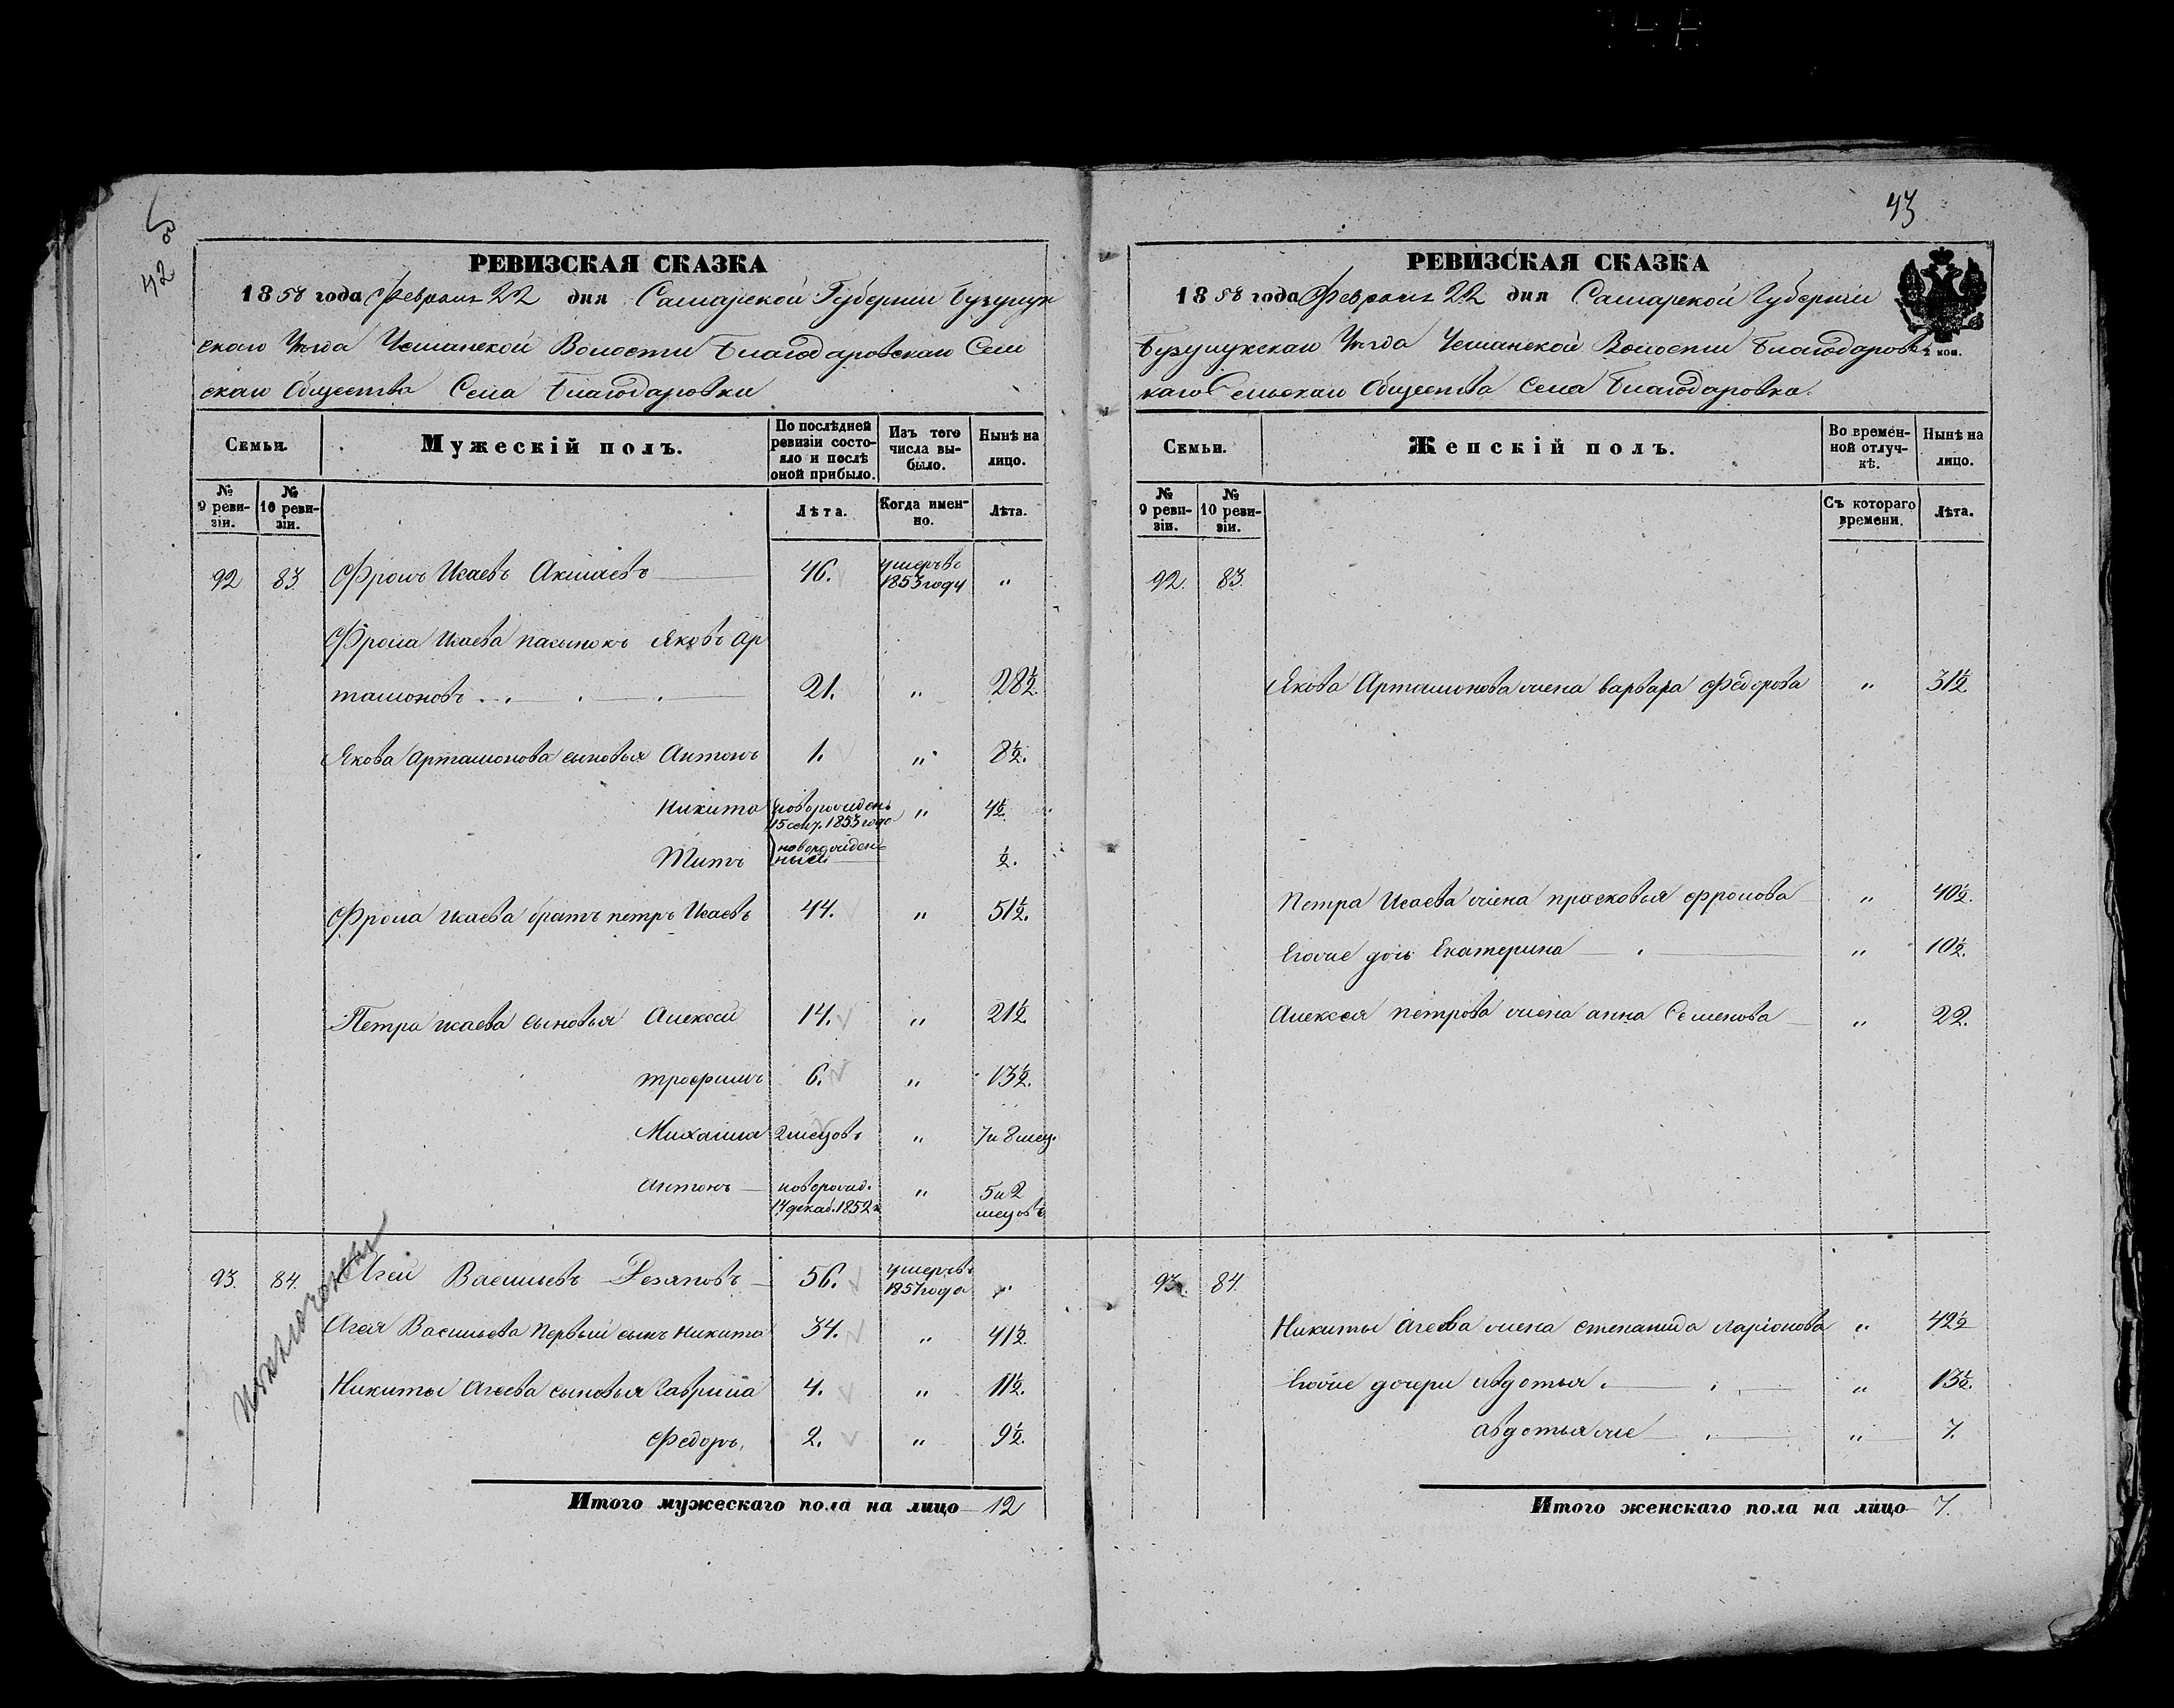 42
РЕВИЗСКАЯ СКАЗКА
1858 года Февраля 22 дня Самарской Губернии Бузулук
скаго Уѣзда Чеманской Волости Благодаровскаго Сель
скаго Общества Села Благодаровки
Семьи.
Мужескій полъ.
По послѣдней ревизіи состояло и послѣ оной прибыло.
Изъ того числа выбыло.
Нынѣ на лицо.
№ 9 ревизіи.
№ 10 ревизіи.
Лѣта.
Когда именно.
Лѣта.
92 83 Фролъ Исаевъ 46. умеръ въ 1853 году "
Фрола Исаева пасынокъ Яковъ Ар
тамоновъ 21. " 28½.
Якова Артамонова сыновья Антонъ 1. " 8½.
Никита новорожденъ 15 сент. 1853 года " 4½
Титъ новорожденный ½.
Фрола Исаева братъ петръ Исаевъ 44. " 51½.
Петра Исаева сыновья Алексей 14. " 21½
трофимъ 6. " 13½.
Михаила 2 мецовъ " 7 и 8 мец.
антонъ новорожд. 14 декаб. 1852 г. " 5 и 2 мецовъ
93. 84. Агей Васильевъ Резяповъ 56. умеръ въ 1857 года "
Агея Васильева первый сынъ Никита 34. " 41½
Никиты Агеева сыновья Гаврила 4. " 11½.
Федоръ. 2. " 9½.
Итого мужескаго пола на лицо 12
43
РЕВИЗСКАЯ СКАЗКА
1858 года Февраля 22 дня Самарской Губерніи
Бузулукскаго Уѣзда Чеманской Волости Благодаровс
каго Сельскаго Общества Села Благодаровка.
2 коп.
Семьи.
Женскій полъ.
Во временной отлучкѣ.
Нынѣ на лицо.
№ 9 ревизіи.
№ 10 ревизіи.
Съ котораго времени.
Лѣта.
92. 83.
Якова Артамонова жена варвара Федорова " 31½
Петра Исаева жена прасковья фролова " 40½.
Егоже дочь Екатерина " 10½.
Алексея петрова жена анна Семенова " 22.
93. 84.
Никиты Агеева жена степанида ларіонова " 42½
Егоже дочери авдотья " 13½.
авдотья же " 7.
Итого женскаго пола на лицо 7.